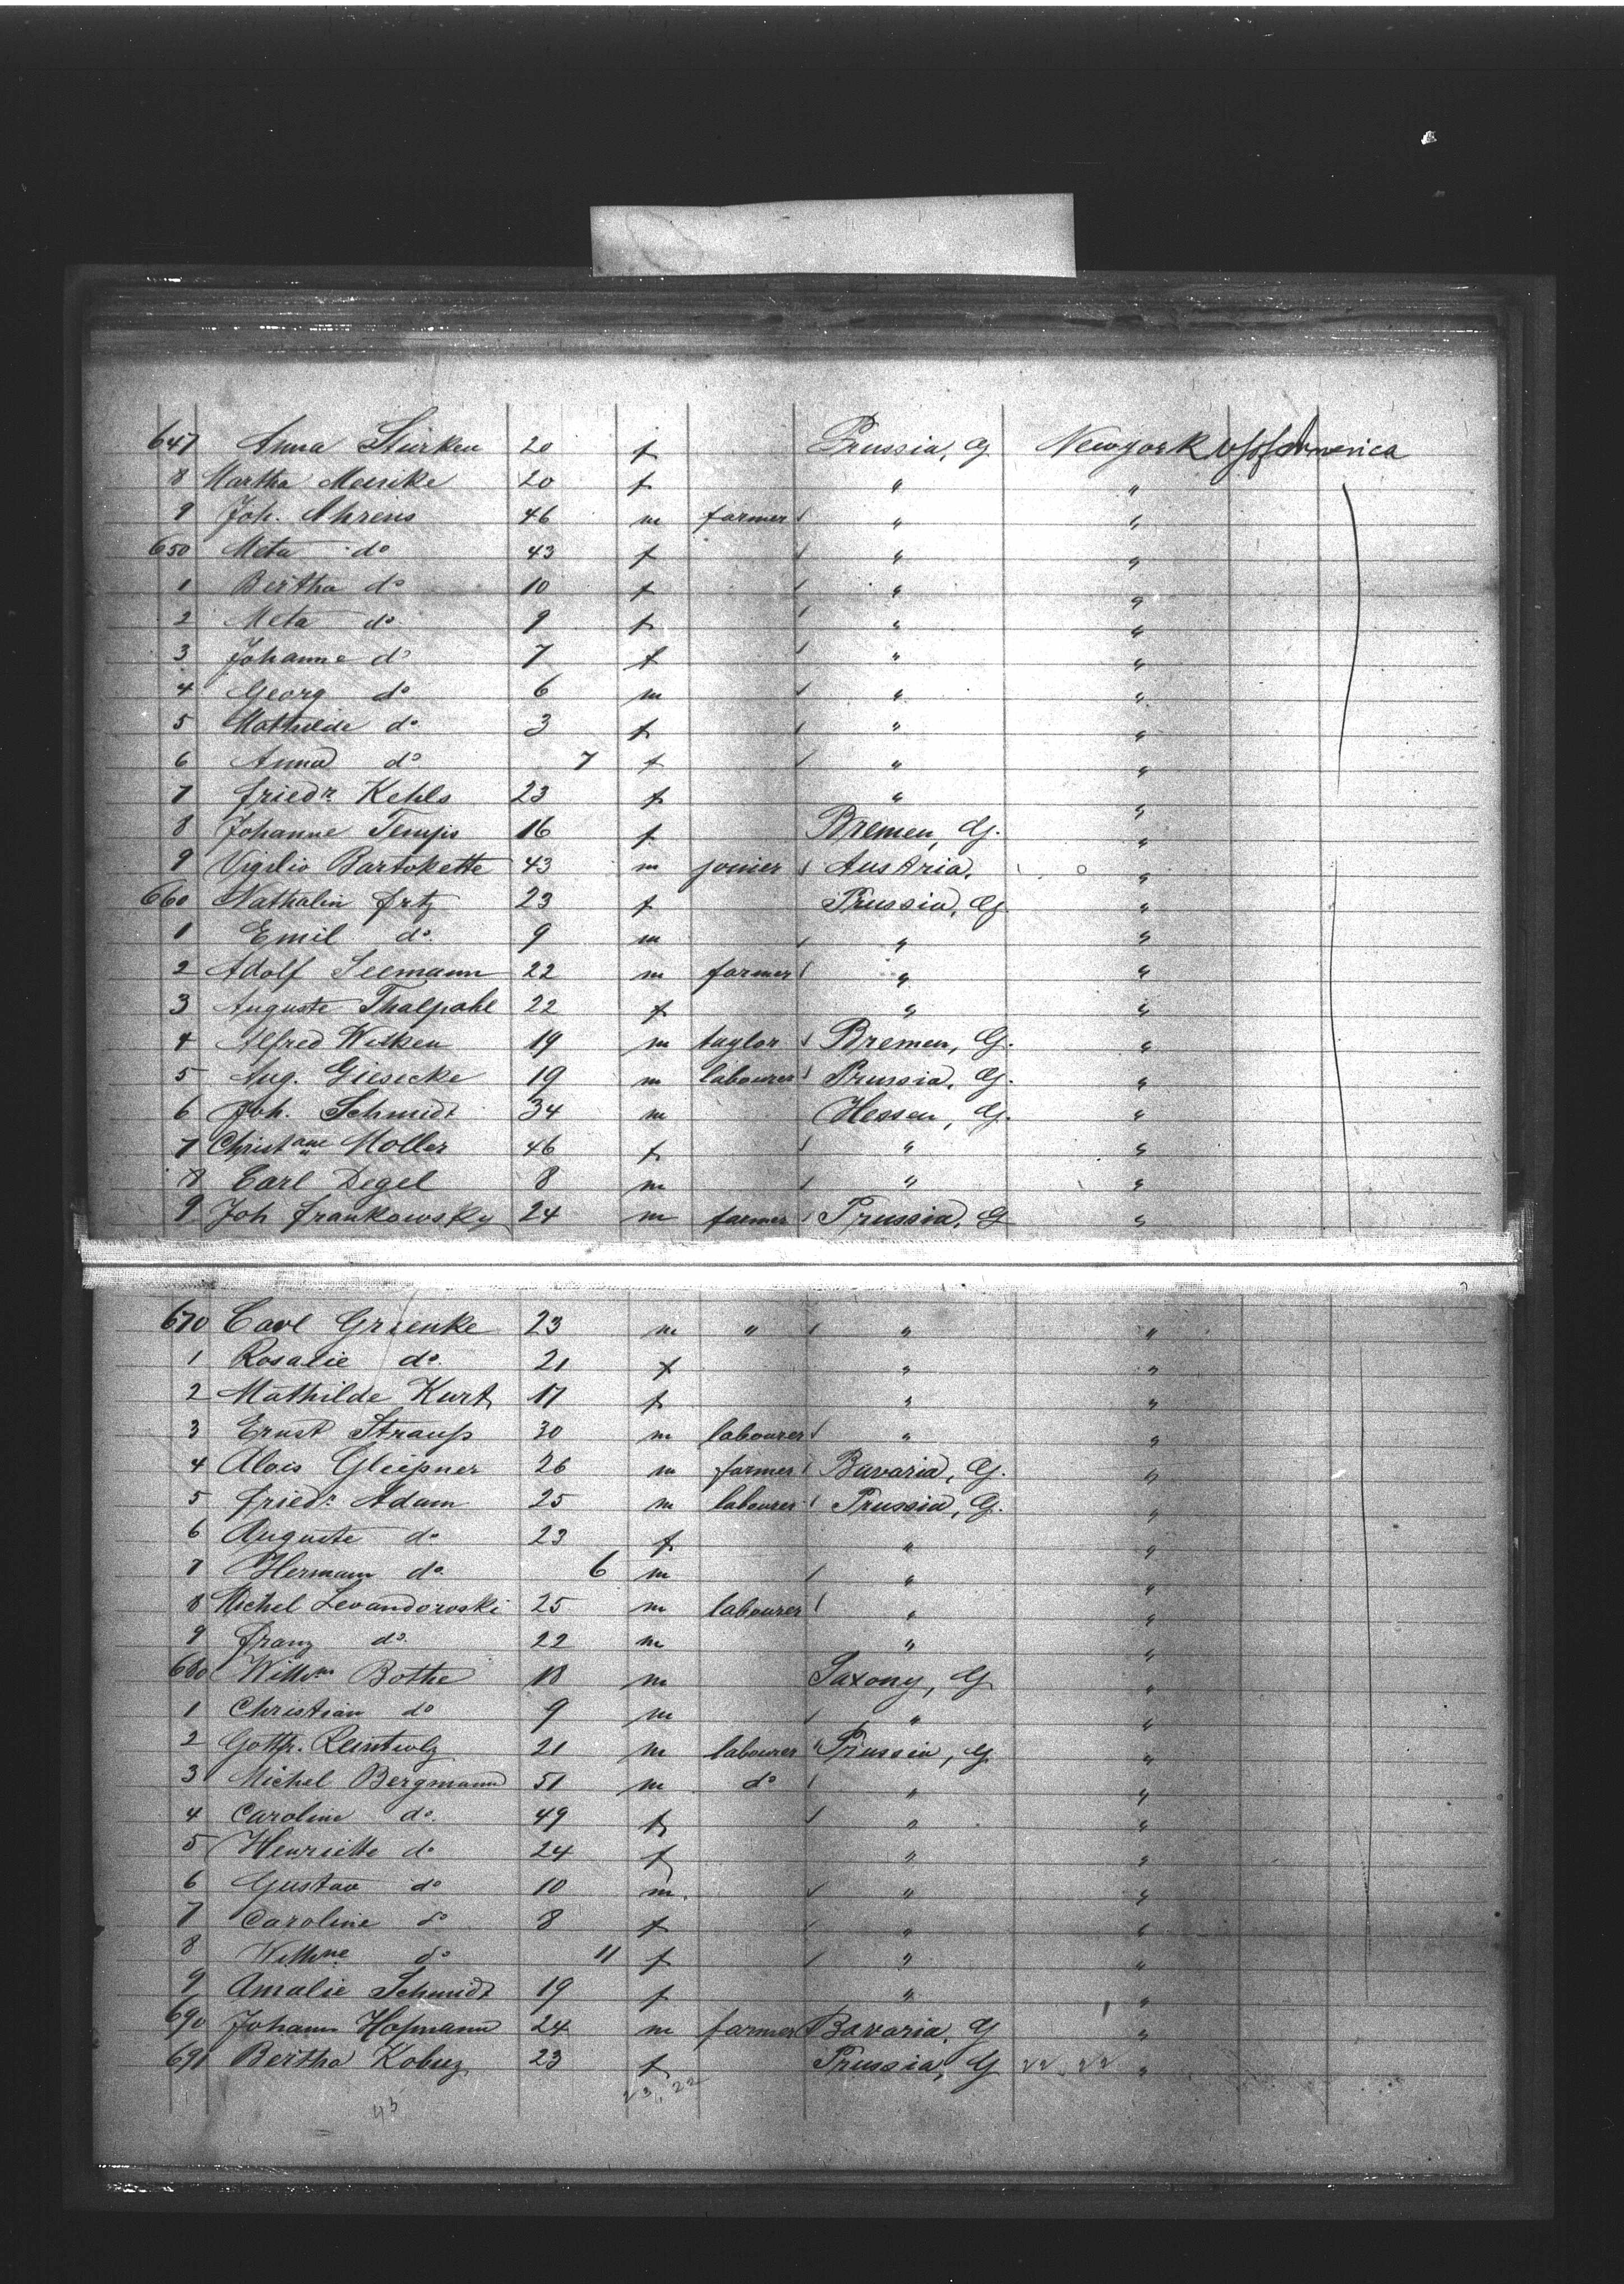 647 Anna Stürken 20 f Prussia, G Newyork U/S of America
8 Martha Meerike 20 f " "
9 Joh. Ahrens 46 m farmer " "
650 Meta do 43 f " "
1 Bertha do 10 f " "
2 Meta do 9 f " "
3 Johanne do 7 f " "
4 Georg do 6 m " "
5 Mathilde do 3 f " "
6 Anna do 7 f " "
7 Friedr. Kehls 23 f " "
8 Johanne Temps 16 f Bremen, G. "
9 Vigilio Bartokette 43 m joiner Austria, "
660 Nathalin 23 f Prussia, G "
1 Emil do. 9 m " "
2 Adolf Seemann 22 m farmer " "
3 Auguste Thalpahl 22 f " "
4 Alfred Wilken 19 m taylor Bremen, G. "
5 Aug. Giesecke 19 m labourer Prussia, G. "
6 Joh. Schmidt 34 m Hessen, G. "
7 Christane Moller 46 f " "
8 Carl Degel 8 m " "
9 Joh Frankowsky 24 m farmer Prussia, G "
670 Carl Grienke 23 m " " "
1 Rosalie do. 21 f " "
2 Mathilde Kurt 17 f " "
3 Ernst Strauß 30 m labourer " "
4 Alois Gleißner 26 m farmer Bavaria, G. "
5 Friedr. Adam 25 m labourer Prussia, G. "
6 Auguste do 23 f " "
7 Hermann do. 6 m " "
8 Michel Levandoroski 25 m labourer " "
9 Franz do. 22 m " "
680 Willm Bothe 18 m Saxony, G "
1 Christian do 9 m " "
2 Gottfr. 21 m labourer Prussia, G "
3 Michel Bergmann 51 m do " "
4 Caroline do. 49 f " "
5 Henriette do 24 f " "
6 Gustav do 10 m. " "
7 Caroline do 8 f " "
8 Willhne do 11 f " "
9 Amalie Schmidt 19 f " "
690 Johann Hofmann 24 m farmer Bavaria, G "
691 Bertha Kobuz 23 f Prussia, G 22 22 "
45 23 22